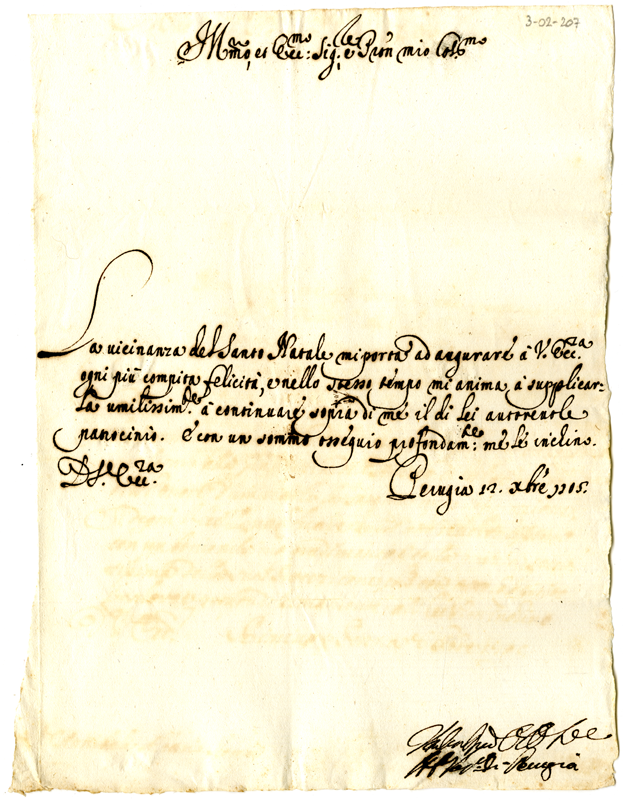 3-02-207
Ill.mo, et Ecc.mo Sig.re e Pron mio Col.mo
La uicinanza del Santo Natale mi porta ad augurare à V. Ecc.za
ogni più compita felicità, e nello stesso tempo mi anima à supplicar=
La umilissim.te à continuare sopra di me il di lei autoreuole
patrocinio. E con un sommo ossequio profondam.te me Le inchino.
D. V. Ecc.za
Perugia 12. xbre 1705.
di Perugia